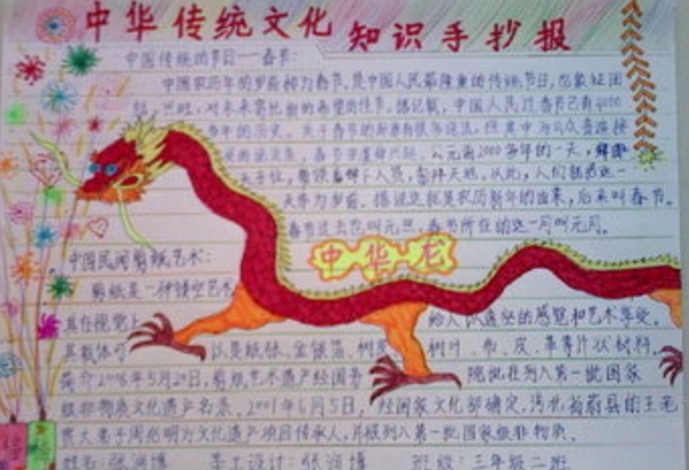 中华传统文化 知识手抄报
中国传统的节日——春节:
中国农历年的岁首称为春节,是中国人民最隆重的传统节日,也象征团
结、兴旺,对未来寄托新的希望的佳节。据记载,中国人民过春节已有4000
多年的历史。关于春节的起源有很多说法,但其中为公众普遍接
受的说法是,春节由虞舜兴起。公元前2000多年的一天,舜即
天子位,带领着部下人员,祭拜天地。从此,人们就把这一
天当为岁首。据说这就是农历新年的由来,后来叫春节。
春节过去也叫元旦。春节所在的这一月叫元月。
中华龙
中国民间剪纸艺术:
剪纸是一种镂空艺术
其在视觉上 给人以透空的感觉和艺术享受。
其载体可以是纸张、金银箔、树皮、树叶、布、皮、革等片状材料。
5月20日,剪纸艺术遗产经国务院批准列入第一批国家
级非物质文化遗产名录。6月5日,经国家文化部确定,河北省蔚县的王老
赏大弟子周兆明为文化遗产项目传承人,并被列入第一批国家级非物质。
姓名:张润博 美工设计:张润博 班级:三年级二班